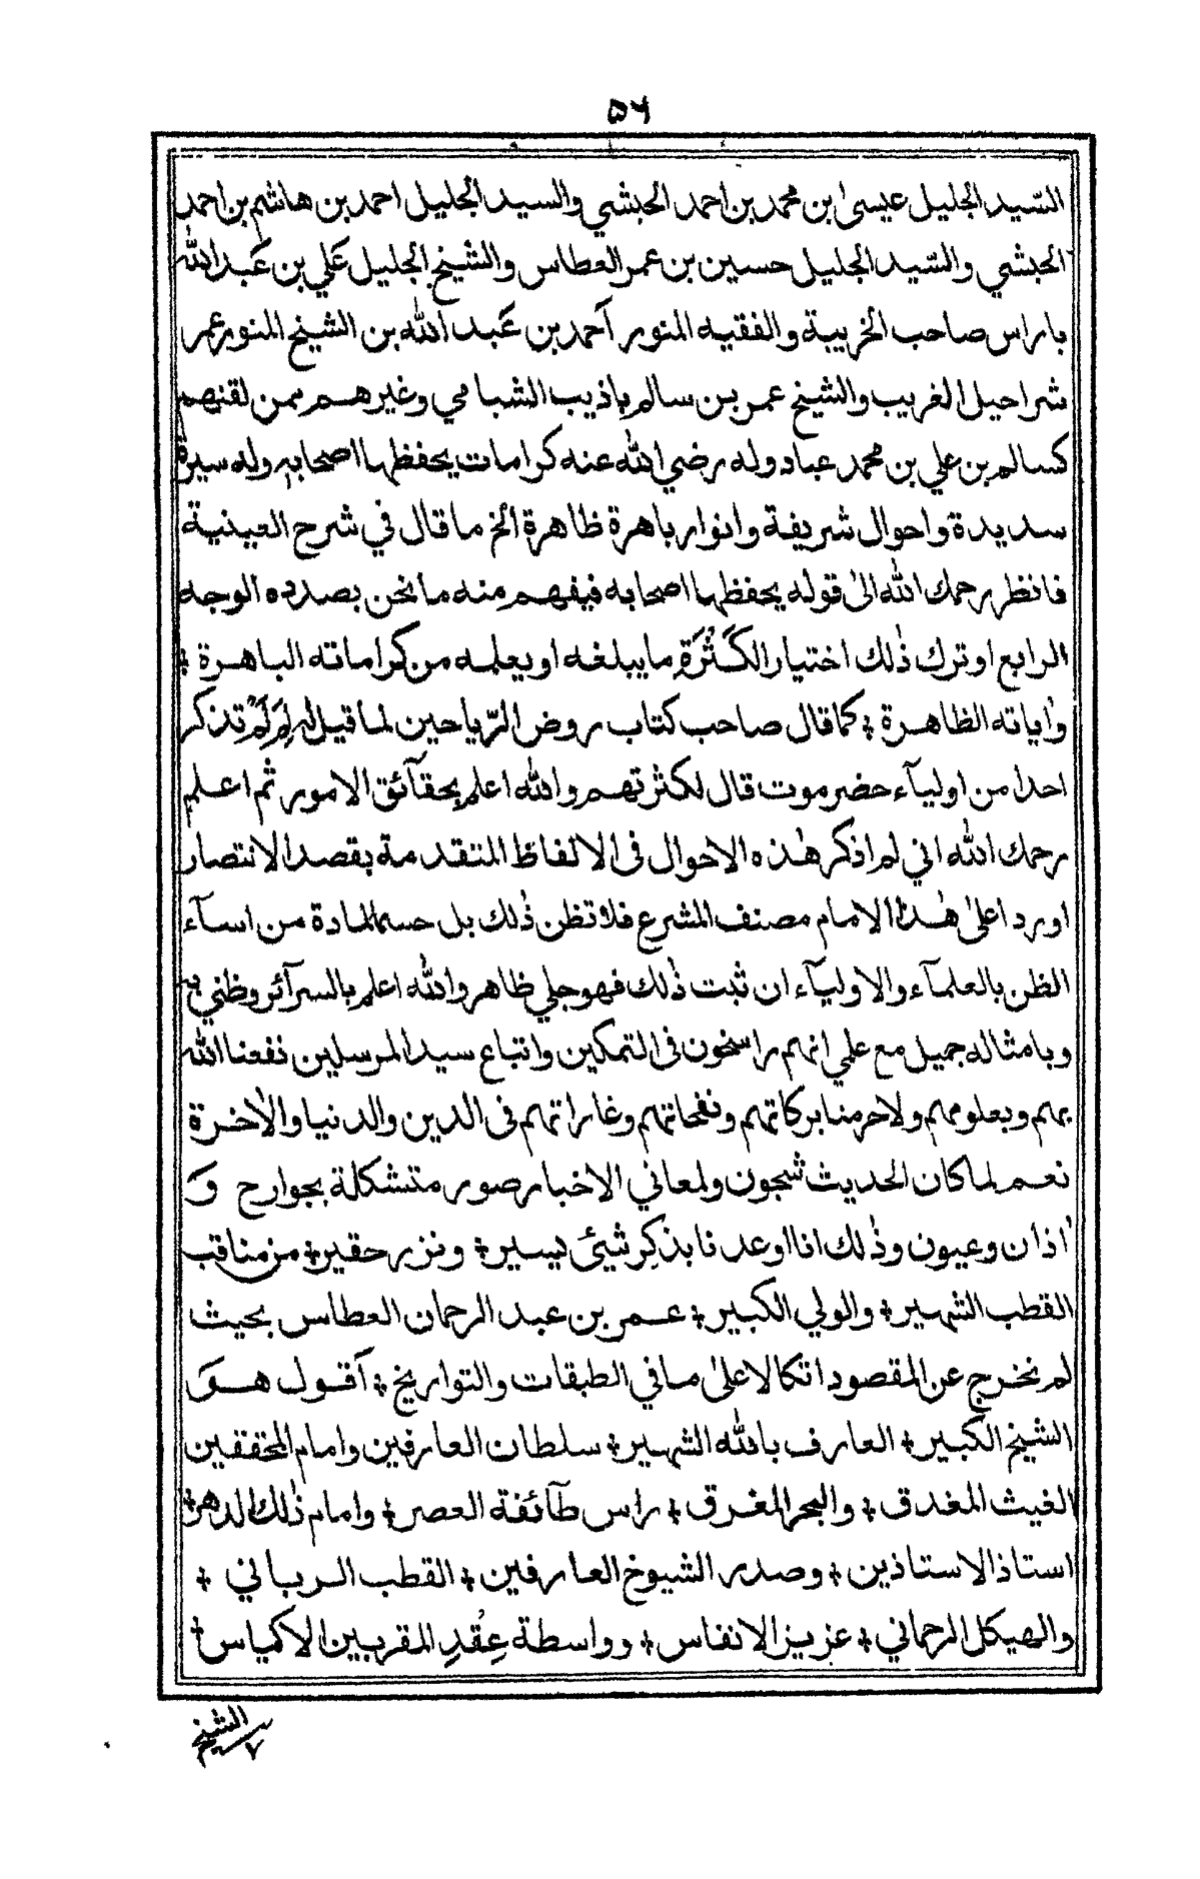 ۵۶
السّيد الجليل عيسىٰ بن محمد بن احمد الحبشي والسيد الجليل احمد بن هاشم بن احمد
الحبشي والسّيد الجليل حسين بن عمر العطاس والشيخ الجليل عَلي بن عَبد الله
باراس صاحب الخريبة والفقيه المنور آحمد بن عَبد الله بن الشيخ المنور عمر
شراحيل الغريب والشيخ عمر بن سالم باذيب الشبامي وغيرهم ممن لقنهم
كسالم بن علي بن محمد عباد وله رضي الله عنه كرامات يحفظها اصحابه وله سيرة
سديدة واحوال شريفة وانوار باهرة ظاهرة الخ ما قال في شرح العينية
فانظر رحمك الله الىٰ قوله يحفظها اصحابه فيفهم منه ما نحن بصدده الوجه
الرابع او ترك ذٰلك اختيار الكَثْرَةِ ما يبلغه او يعلمه من كراماته الباهرة ؛
واٰياته الظاهرة ؛ كما قال صاحب كتاب روض الرّياحين لما قيل له لِمَ لَمْ تذكر
احدا من اوليآء حضرموت قال لكثرتهم والله اعلم بحقآئق الامور ثم اعلم
رحمك الله اني لم اذكر هٰذه الاحوال فى الالفاظ المتقدمة بقصد الانتصار
او ردا علىٰ هٰذا الامام مصنف المشرع فلا تظن ذٰلك بل حسما لمادة من اسآء
الظن بالعلمآء والاوليآء ان ثبت ذٰلك فهو جلي ظاهر والله اعلم بالسرآئر وظني به
وبامثاله جميل مع علي انهم راسخون فى التمكين واتباع سيد المرسلين نفعنا الله
بهم وبعلومهم ولا حرمنا بركاتهم ونفحاتهم وغاراتهم فى الدين والدنيا والاٰخرة
نعم لما كان الحديث شجون ولمعاني الاخبار صور متشكلة بجوارح وَ
اٰذان وعيون وذٰلك انا اوعدنا بذكِر شيئ يسير ؛ ونزر حقير ؛ من مناقب
القطب الشهير ؛ والولي الكبير ؛ عمر بن عبد الرحمان العطاس بحيث
لم نخرج عن المقصود اتكالا علىٰ ما في الطبقات والتواريخ ؛ آقول هو
الشيخ الكبير ؛ العارف بالله الشهير ؛ سلطان العارفين وامام المحققين
الغيث المغدق ؛ والبحر المغرق ؛ راس طآئفة العصر ؛ وامام ذٰلك الدهر ؛
استاذ الاستاذين ؛ وصدر الشيوخ العارفين ؛ القطب الرباني ؛
والهيكل الرحماني ؛ عزيز الانفاس ؛ وواسطة عِقدِ المقربين الاكياس ؛
الشيخ
٧